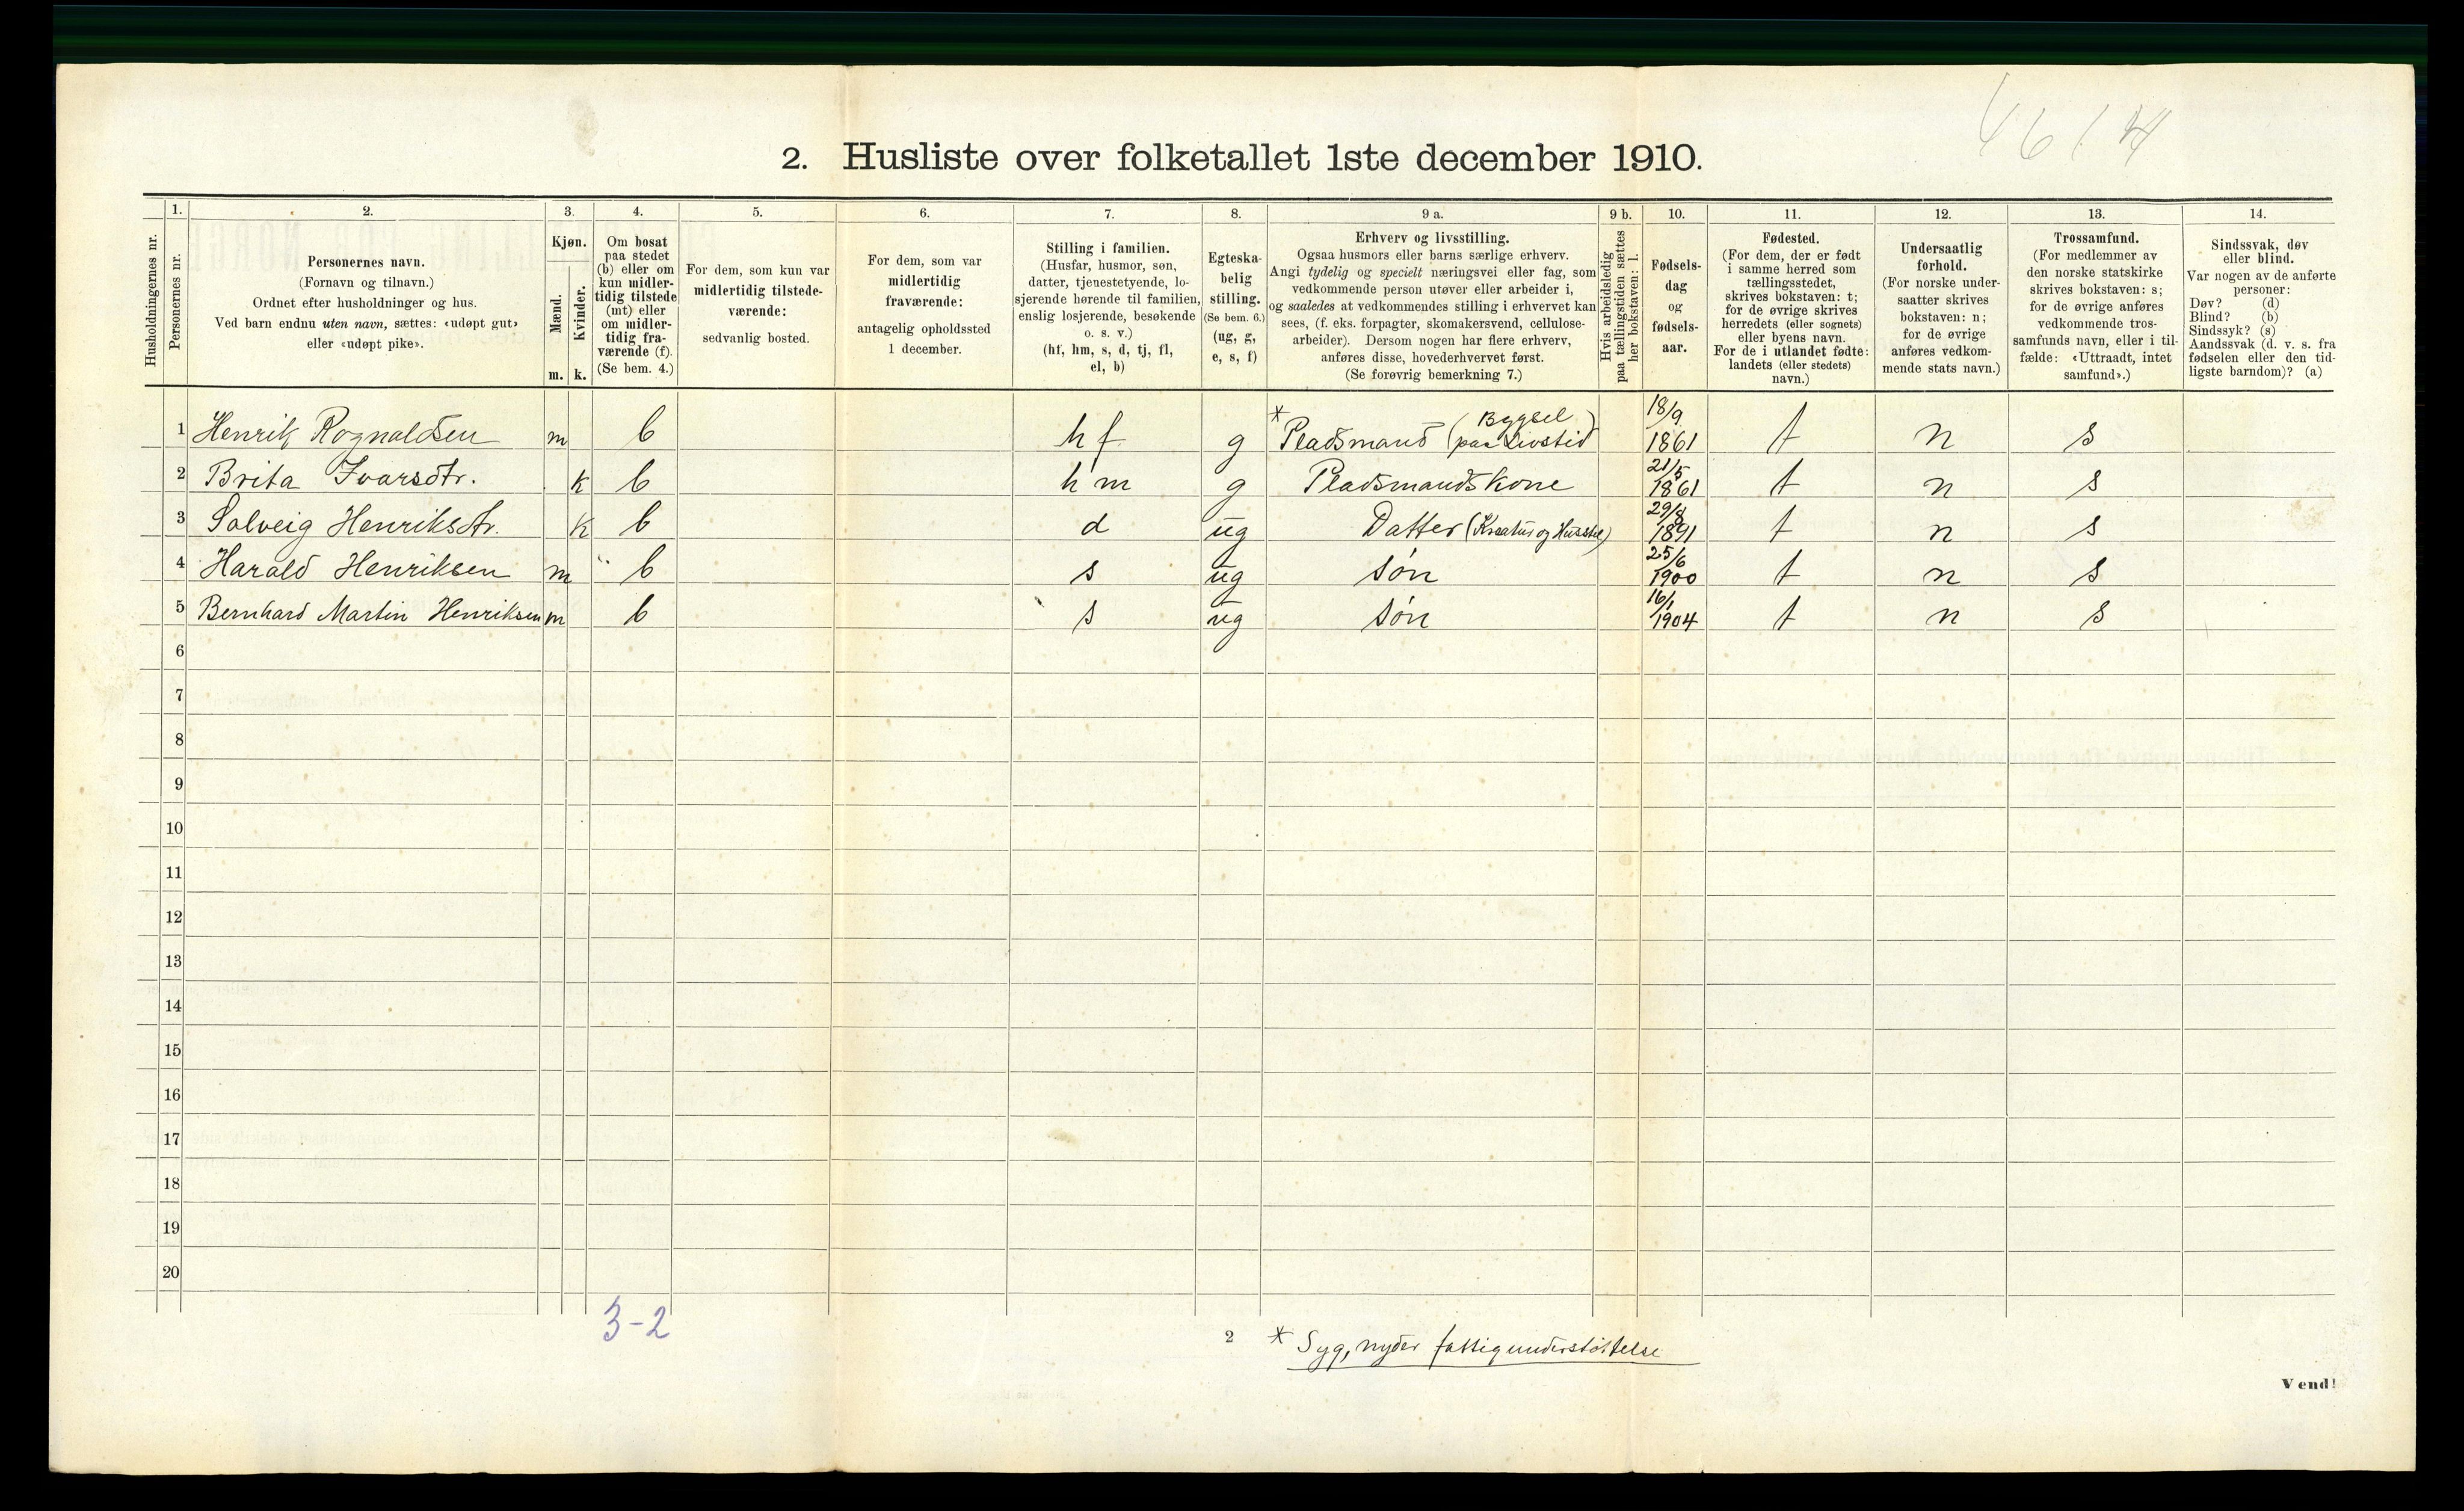 4614
2. Husliste over folketallet 1ste december 1910.
1. 2. 3. 4. 5. 6. 7. 8. 9 a. 9 b. 10. 11. 12. 13. 14.
Husholdningernes nr.
Personernes nr.
Personernes navn.
(Fornavn og tilnavn.)
Ordnet efter husholdninger og hus.
Ved barn endnu uten navn, sættes: «udøpt gut»
eller «udøpt pike».
Kjøn.
Mænd.
Kvinder.
m. k.
Om bosat
paa stedet
(b) eller om
kun midler-
tidig tilstede
(mt) eller
om midler-
tidig fra-
værende (f).
(Se bem. 4.)
For dem, som kun var
midlertidig tilstede-
værende:
sedvanlig bosted.
For dem, som var
midlertidig
fraværende:
antagelig opholdssted
1 december.
Stilling i familien.
(Husfar, husmor, søn,
datter, tjenestetyende, lo-
sjerende hørende til familien,
enslig losjerende, besøkende
o. s. v.)
(hf, hm, s, d, tj, fl,
el, b)
Egteska-
belig
stilling.
(Se bem. 6.)
(ug, g,
e, s, f)
Erhverv og livsstilling.
Ogsaa husmors eller barns særlige erhverv.
Angi tydelig og specielt næringsvei eller fag, som
vedkommende person utøver eller arbeider i,
og saaledes at vedkommendes stilling i erhvervet kan
sees, (f. eks. forpagter, skomakersvend, cellulose-
arbeider). Dersom nogen har flere erhverv,
anføres disse, hovederhvervet først.
(Se forøvrig bemerkning 7.)
Hvis arbeidsledig
paa tællingstiden sættes
her bokstaven: l.
Fødsels-
dag
og
fødsels-
aar.
Fødested.
(For dem, der er født
i samme herred som
tællingsstedet,
skrives bokstaven: t;
for de øvrige skrives
herredets (eller sognets)
eller byens navn.
For de i utlandet fødte:
landets (eller stedets)
navn.)
Undersaatlig
forhold.
(For norske under-
saatter skrives
bokstaven: n;
for de øvrige
anføres vedkom-
mende stats navn.)
Trossamfund.
(For medlemmer av
den norske statskirke
skrives bokstaven: s;
for de øvrige anføres
vedkommende tros-
samfunds navn, eller i til-
fælde: «Uttraadt, intet
samfund».)
Sindssvak, døv
eller blind.
Var nogen av de anførte
personer:
Døv? (d)
Blind? (b)
Sindssyk? (s)
Aandssvak (d. v. s. fra
fødselen eller den tid-
ligste barndom)? (a)
1 Henrik Rognaldsen m b hf g * Pladsmand (Bygsel paa Livstid) 18/9 1861 t n s
2 Brita Ivarsdtr. k b hm g Pladsmandskone 21/5 1861 t n s
3 Solveig Henriksdtr. k b d ug Datter (Kreatur og Husstel) 29/8 1891 t n s
4 Harald Henriksen m b s ug søn 25/6 1900 t n s
5 Bernhard Martin Henriksen m b s ug søn 16/1 1904 t n s
6
7
8
9
10
11
12
13
14
15
16
17
18
19
20
3-2
2
* Syg, nyder fattigunderstøttelse
Vend!